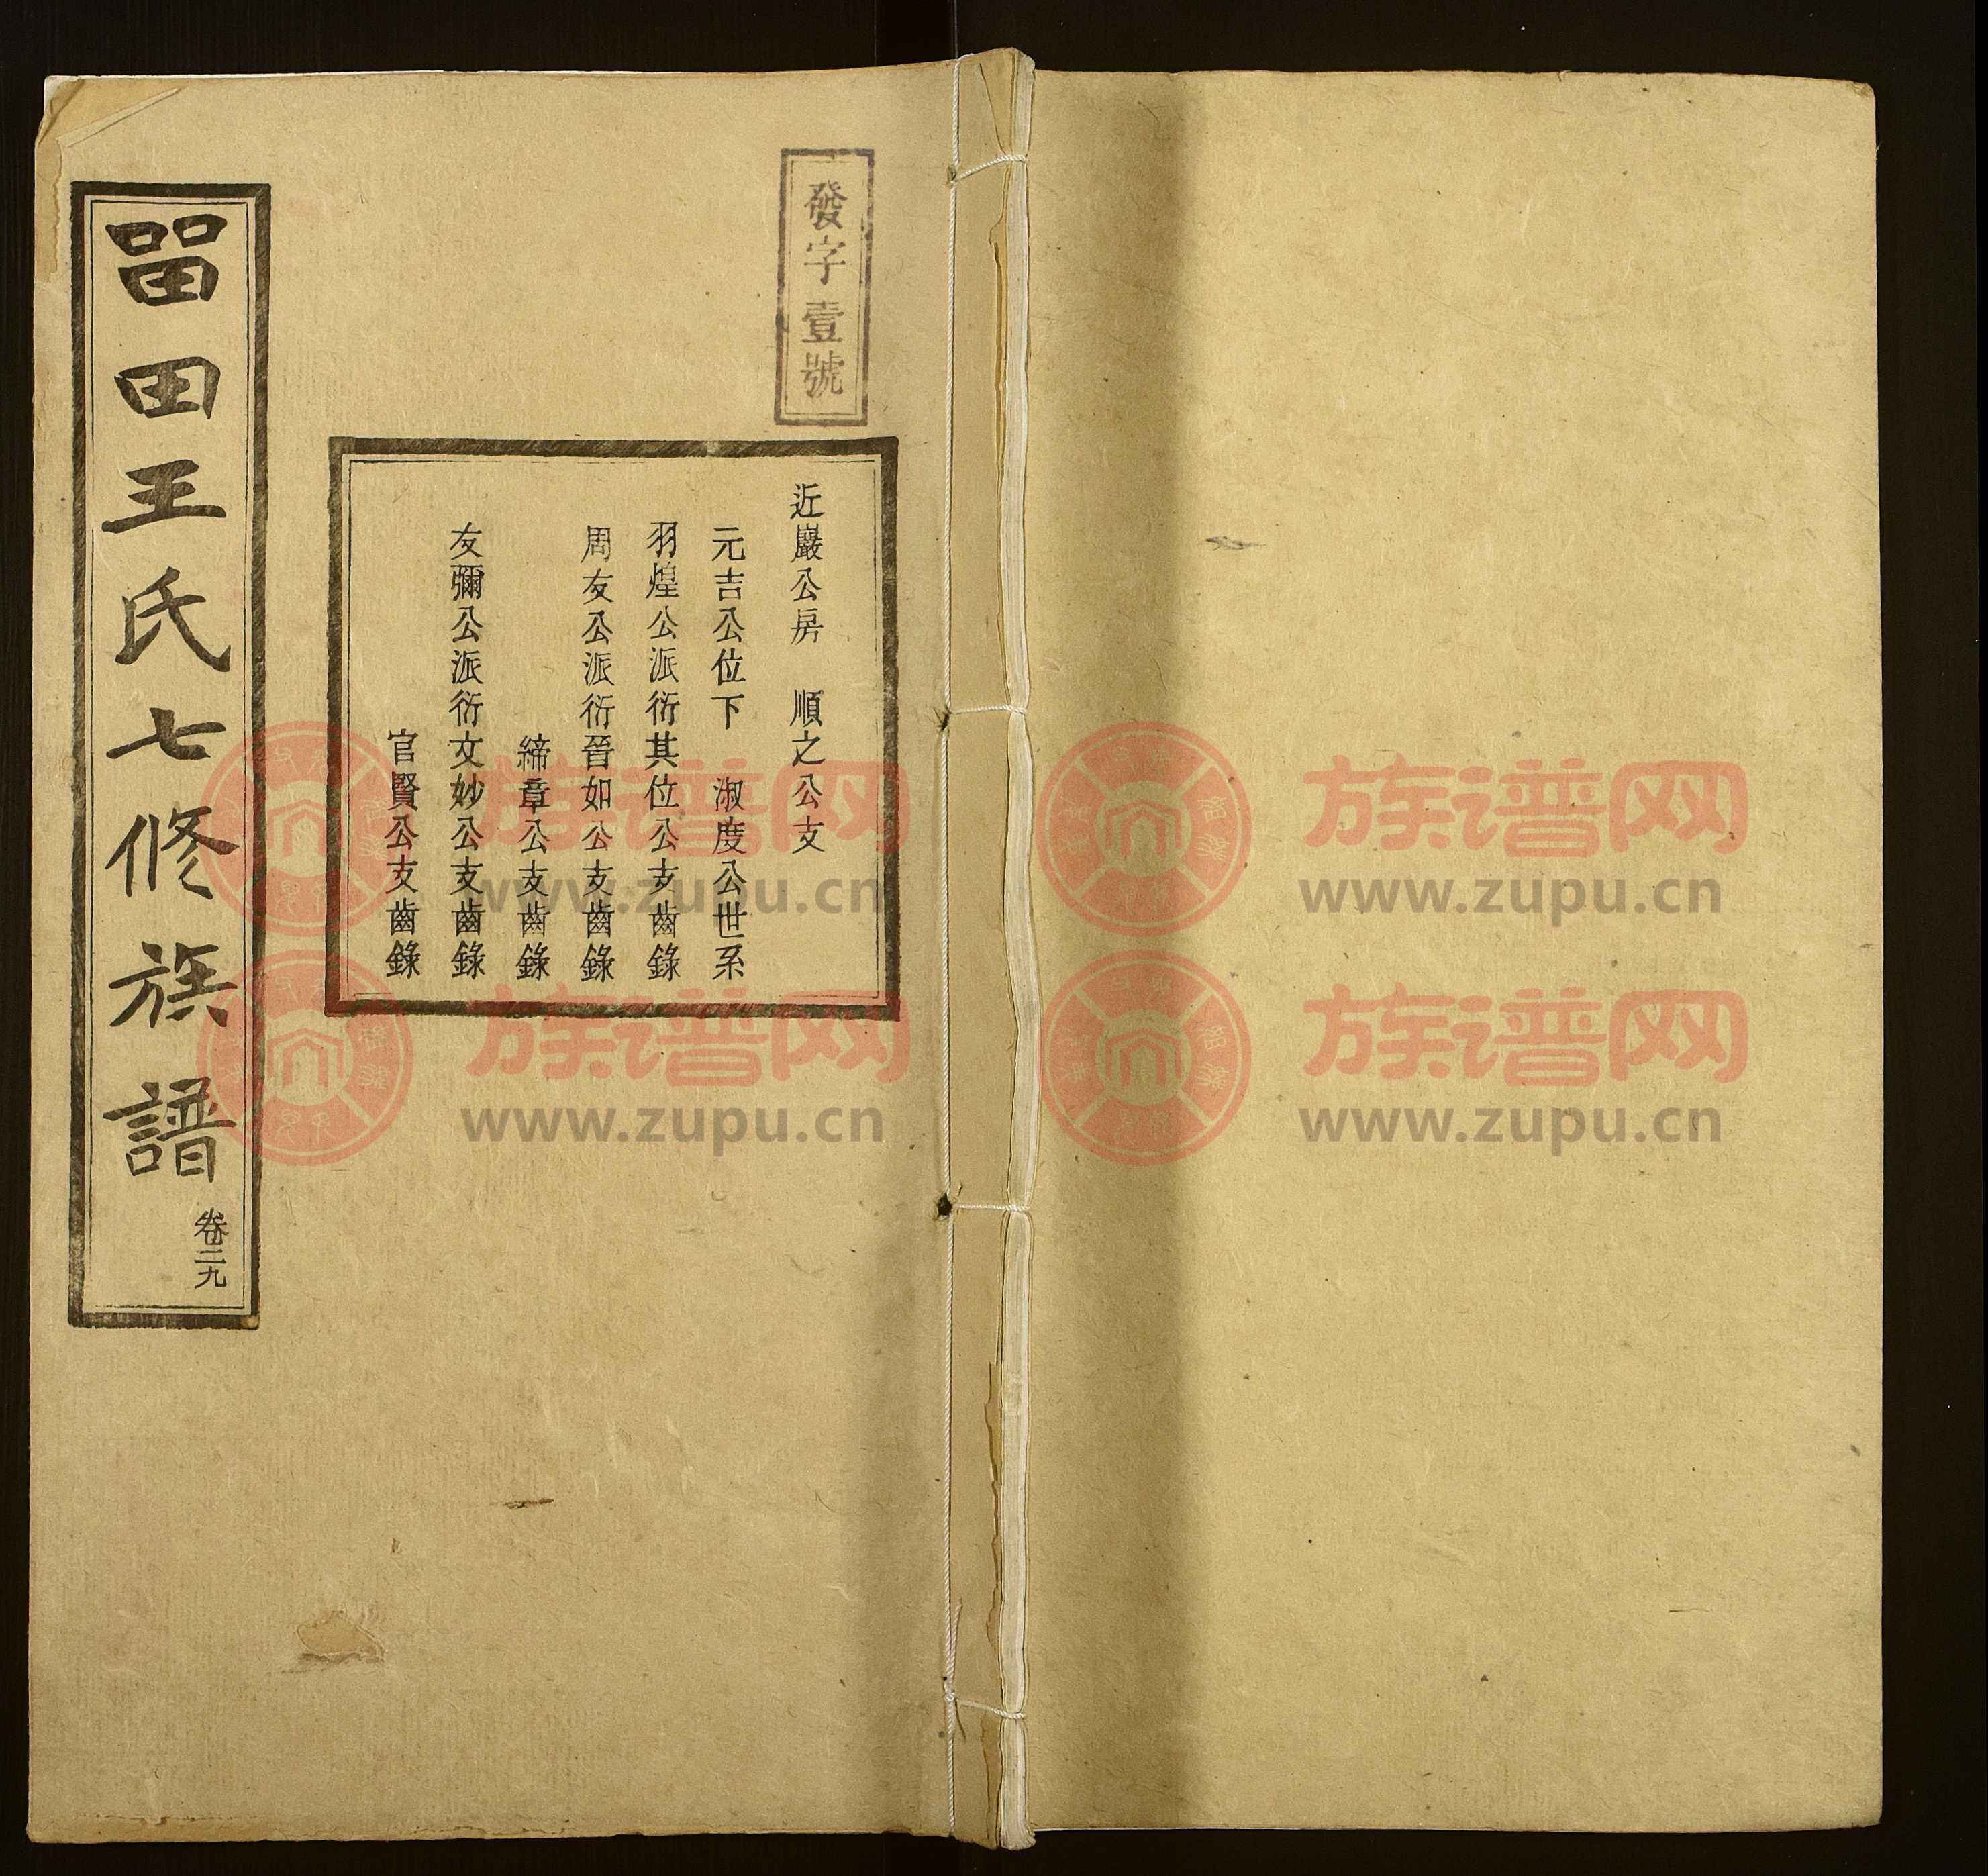 發字壹號
近巖公房　順之公支
元吉公位下　淑度公世系
羽煌公派衍其位公支齒錄
周友公派衍晉如公支齒錄
締章公支齒錄
友彌公派衍文妙公支齒錄
官賢公支齒錄
畱田王氏七修族譜
卷二九
族谱网
www.zupu.cn
族谱网
www.zupu.cn
族谱网
www.zupu.cn
族谱网
www.zupu.cn